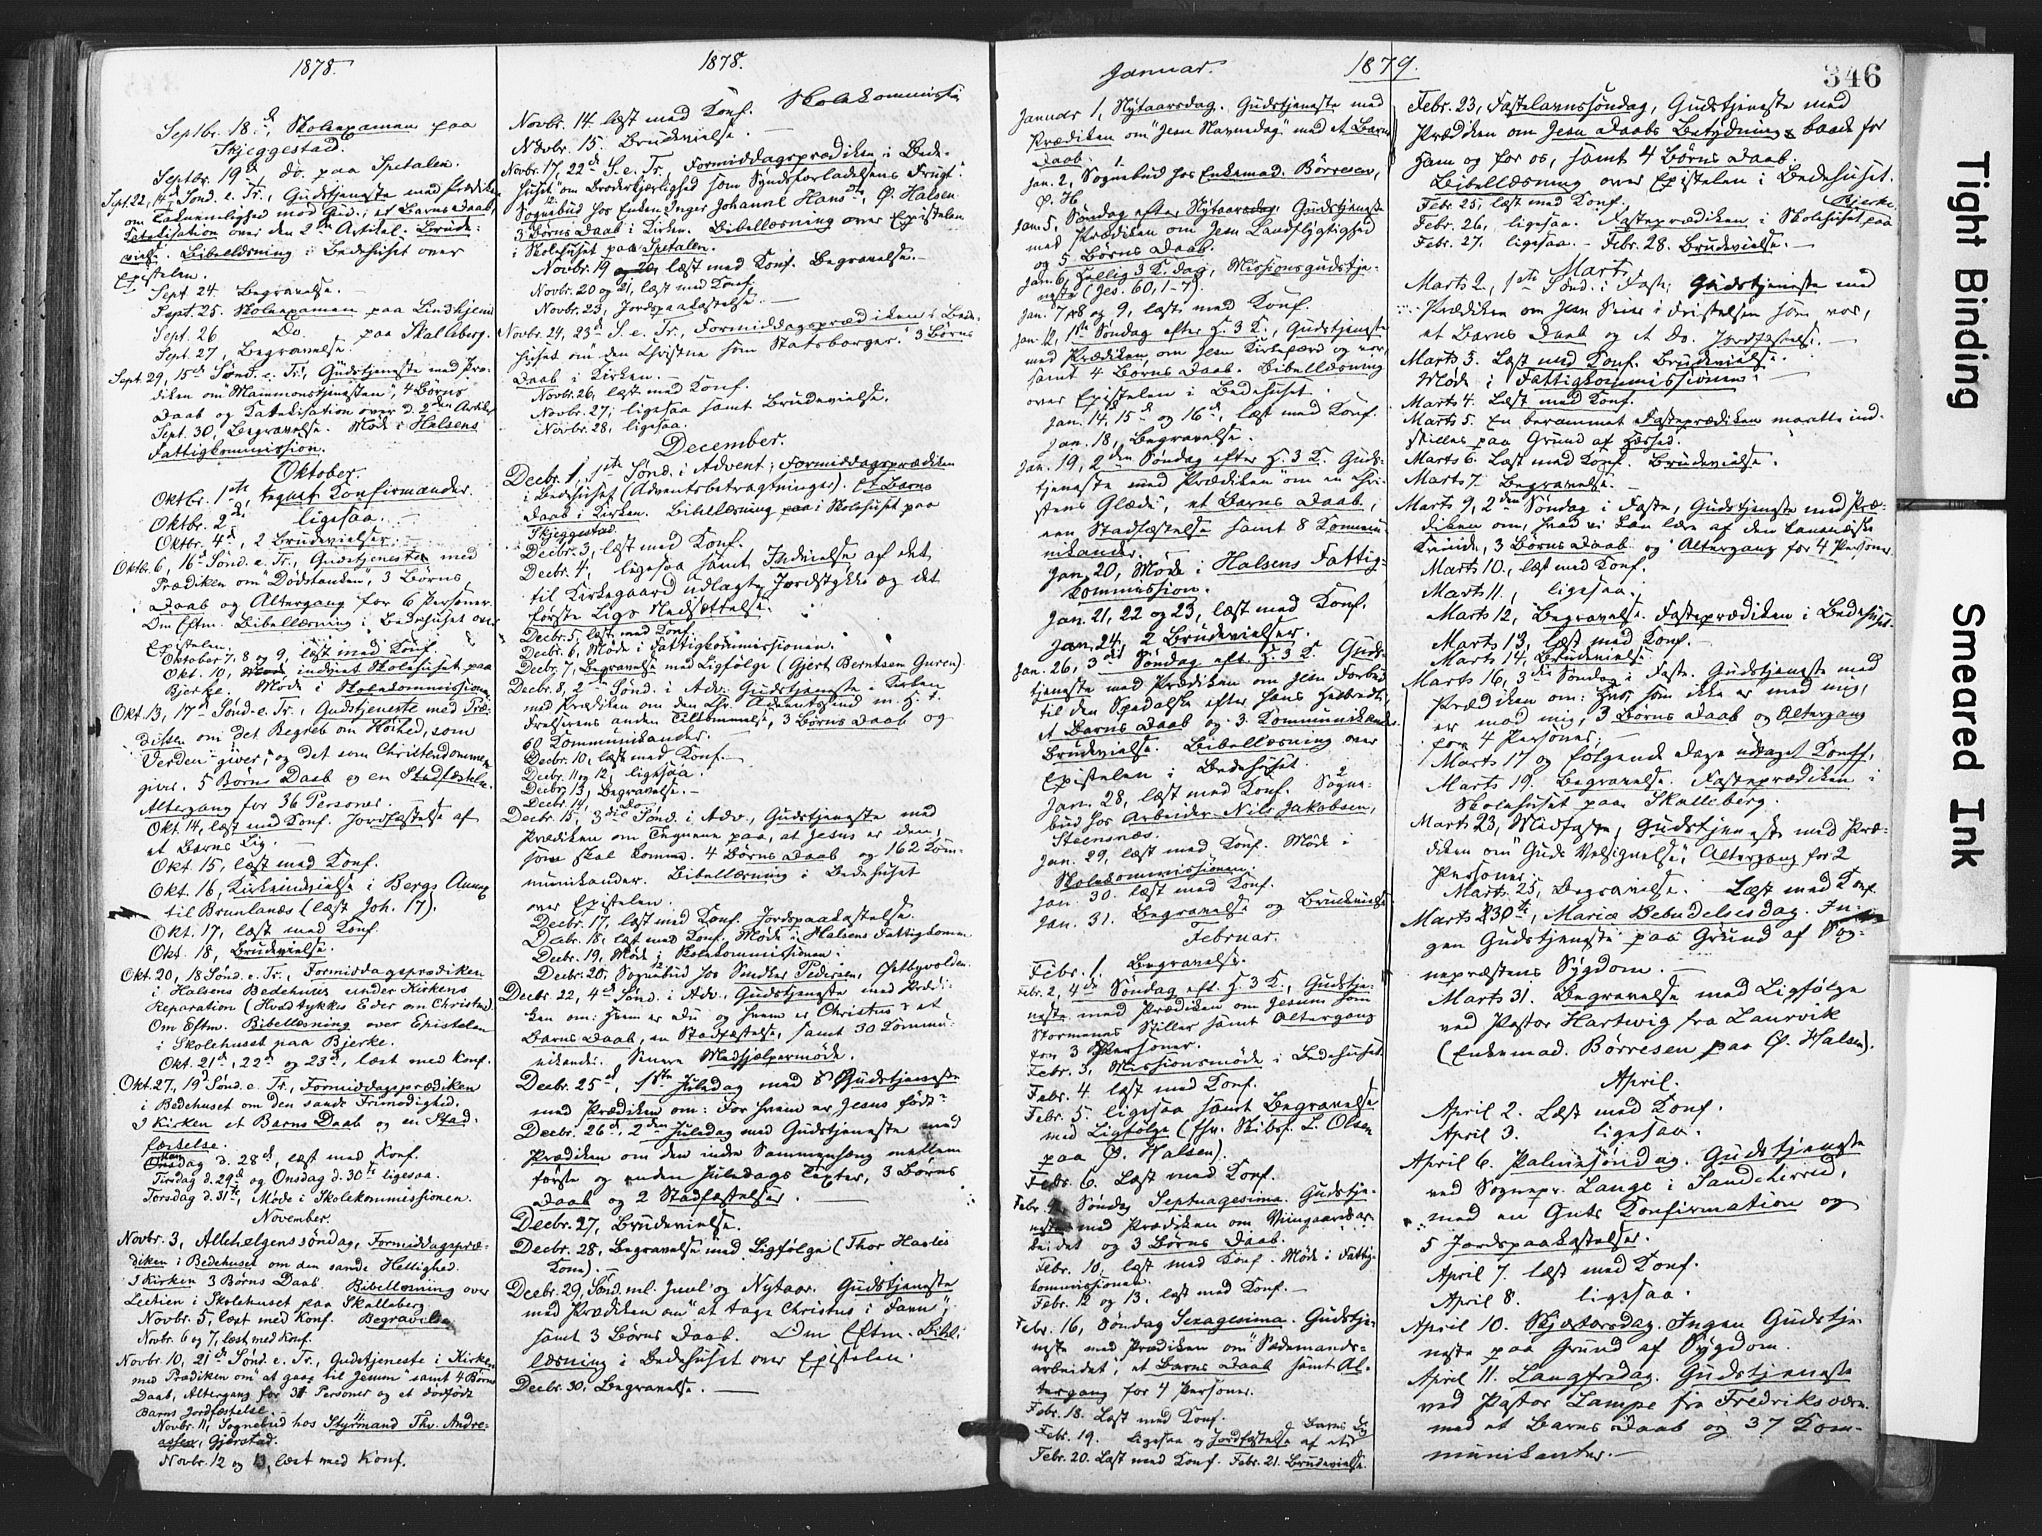 1878.
Septbr. 18d, Skoleexamen paa
Skjeggestad.
Septbr. 19d do. paa Spetalen.
Sept. 22, 14d Sønd. e. Tr., Gudstjeneste med Prædiken
om Taknemelighed mod Gud; et Barns Daab,
Katekisation over den 2den Artikel. Brude-
vielse. Bibellæsning i Bedehuset over
Epistelen.
Sept. 24. Begravelse.
Sept. 25. Skoleexamen paa Lindhjem
Sept. 26 Do. paa Skalleberg.
Sept. 27, Begravelse.
Sept. 29, 15d Sønd. e. Tr., Gudstjeneste med Præ-
diken om "Mammonstjenesten", 4 Børns
Daab og Katekisation over d. 2den Artikel
Sept. 30. Begravelse. Møde i Halsens
Fattigkommission.
Oktober.
Oktbr. 1ste, tegnet Konfirmander.
Oktbr. 2d, ligesaa.
Oktbr. 4d, 2 Brudevielser.
Oktbr. 6, 16d Sønd. e. Tr., Gudstjeneste med
Prædiken om "Dødstanken", 3 Børns
Daab og Altergang for 6 Personer.
Om Eftm. Bibellæsning i Bedehuset over
Epistelen.
Oktober 7, 8 og 9, læst med Konf.
Okt. 10, indviet Skolehuset paa
Bjerke. Møde i Skolekommissionen
Okt. 13, 17d Sønd. e. Tr., Gudstjeneste med Præ-
diken om det Begreb om Høihed, som
Verden "giver", og det som Christendommen
giver. 5 Børns Daab og en Stadfæstelse.
Altergang for 36 Personer.
Okt. 14, læst med Konf. Jordfæstelse af
et Barns Lig.
Okt. 15, læst med Konf.
Okt. 16, Kirkeindvielse i Bergs Annex
til Brunlanæs (læst Joh. 17).
Okt. 17, læst med Konf.
Okt. 18, Brudevielse.
Okt. 20, 18 Sønd. e. Tr., Formiddagsprædiken
i Halsens Bedehuset under Kirkens
Reparation (Hvad tykkes Eder om Christus)
Om Eftm. Bibellæsning over Epistelen
i Skolehuset paa Bjerke.
Okt. 21d, 22d og 23d, læst med Konf.
Okt. 27, 19d Sønd. e. Tr., Formiddagsprædiken
i Bedehuset om den sande Frimodighed.
I Kirken et Barns Daab og en Stad-
fæstelse.
Mandag d. 28d, læst med Konf.
Tirsdag d. 29d og Onsdag d. 30te ligesaa.
Torsdag d. 31te, Møde i Skolekommissionen.
November.
Novbr. 3, Allehelgenssøndag, Formiddagspræ-
diken i Bedehuset om den sande Hellighed.
I Kirken 3 Børns Daab. Bibellæsning over
Lectien i Skolehuset paa Skalleberg
Novbr. 5, læst med Konf. Begravelse
Novbr. 6 og 7, læst med Konf.
Novbr. 10, 21d Sønd. e. Tr., Gudstjeneste i Kirken
med Prædiken om "at gaae til Jesum" samt 4 Børns
Daab, Altergang for 31 Personer og et dødfødt
Barns Jordfæstelse.
Novbr. 11, Sognebud hos Styrmand Thv. Andre-
assen, Gjerstad.
Novbr. 12 og 13, læst med Konf.
1878.
Novbr. 14. læst med Konf. Skolekommissi
Novbr. 15. Brudevielse.
Novbr. 17, 22d S. e. Tr. Formiddagsprædiken i Bede-
huset om Broderkjærlighed som Syndsforladelsens Frugt.
Sognebud hos Enken Inger Johanne Hansdtr, Ø. Halsen
3 Børns Daab i Kirken. Bibellæsning over Epistelen
i Skolehuset paa Spetalen.
Novbr. 19 læst med Konf. Begravelse.
Novbr. 20 og 21, læst med Konf.
Novbr. 23, Jordspaakastelse.
Novbr. 24, 23d S. e. Tr., Formiddagsprædiken i Bede-
huset om "den Christne som Statsborger." 3 Børns
Daab i Kirken.
Novbr. 26, læst med Konf.
Novbr. 27, ligesaa samt Brudevielse.
Novbr. 28, ligesaa.
December.
Decbr. 1, 1ste Sønd. i Advent; Formiddagsprædiken
i Bedehuset (Adventsbetragtninger). Et Barns
Daab i Kirken. Bibellæsning i Skolehuset paa
Skjeggestad.
Decbr. 3, læst med Konf.
Decbr. 4, ligesaa samt Indvielse af det
til Kirkegaard udlagte Jordstykke og det
første Ligs Nedsættelse.
Decbr. 5, læst med Konf.
Decbr. 6, Møde i Fattigkommissionen.
Decbr. 7, Begravelse med Ligfølge (Gjert Berntsen Guren)
Decbr. 8, 2d Sønd. i Adv. Gudstjeneste i Kirken
med Prædiken om den Chr. Adventssind m. H. t.
Frelserens anden Tilkommelse, 3 Børns Daab og
60 Kommunikander.
Decbr. 10, læst med Konf.
Decbr. 11 og 12, ligesaa.
Decbr. 13, Begravelse.
Decbr. 14, Do.
Decbr. 15, 3die Sønd. i Adv., Gudstjeneste med
Prædiken om Tegnene paa, at Jesus er den,
som skal komme. 4 Børns Daab og 162 Kom-
munikander. Bibellæsning i Bedehuset
over Epistelen.
Decbr. 17, læst med Konf. Jordspaakastelse.
Decbr. 18, læst med Konf. Møde i Halsens Fattigkomm
Decbr. 19, Møde i Skolekommissionen.
Decbr. 20, Sognebud hos Snedker Pedersen, Østbyvolden
Decbr. 22, 4d Sønd. i Adv., Gudstjeneste med Prædi-
ken om: Hvem er Du og hvem er Christus? et
Barns Daab, en Stadfæstelse, samt 30 Kommu-
nikande. Senere Medhjælpermøde.
Decbr. 25d, 1ste Juledag med Gudstjeneste
med Prædiken om: For hvem er Jesus født?
Decbr. 26d, 2den Juledag med Gudstjeneste med
Prædiken om den indre Sammenhæng mellem
første og anden Juledags Texter, 3 Børns
Daab og 2 Stadfæstelser.
Decbr. 27, Brudevielse.
Decbr. 28, Begravelse med Ligfølge (Thor Haslés
Kone).
Decbr. 29, Sønd. ml. Juul og Nytaar. Gudstjeneste
med Prædiken om "at tage Christus i Favn",
samt 3 Børns Daab. Om Eftm. Bibel-
læsning i Bedehuset over Epistelen.
Decbr. 30, Begravelse.
Januar. 1879.
Januar 1, Nytaarsdag. Gudstjeneste med
Prædiken om "Jesu Navnedag" med et Barns
Daab.
Jan. 2, Sognebud hos Enkemad. Børresen,
Ø. H.
Jan. 5, Søndag efter Nytaarsdag. Gudstjeneste
med Prædiken om Jesu Landflygtighed
og 5 Børns Daab.
Jan. 6, Hellig 3 K. dag, Missionsgudstje-
neste (Jes. 60, 1-7).
Jan. 7, 8 og 9, læst med Konf.
Jan. 12, 1ste Søndag efter H. 3 K., Gudstjeneste
med Prædiken om Jesu Kirkefærd og vor,
samt 4 Børns Daab. Bibellæsning
over Epistelen i Bedehuset.
Jan. 14d, 15d og 16d, læst med Konf.
Jan. 18, Begravelse.
Jan. 19, 2den Søndag efter H. 3 K. Guds-
tjeneste med Prædiken om en Chri-
stens Glæde, et Barns Daab,
een Stadfæstelse samt 8 Kommu-
nikander.
Jan. 20, Møde i Halsens Fattig-
kommission.
Jan. 21, 22 og 23, læst med Konf.
Jan. 24, 2 Brudevielser.
Jan. 26, 3die Søndag eft. H. 3 K. Guds-
tjeneste med Prædiken om Jesu Forbud
til den Spedalske efter hans Helbredelse,
et Barns Daab og 3 Kommunikander.
Brudevielse. Bibellæsning over
Epistelen i Bedehuset.
Jan. 28, læst med Konf. Sogne-
bud hos Arbeider Nils Jakobsen,
Steensnæs.
Jan. 29, læst med Konf. Møde i
Skolekommissionen.
Jan. 30. læst med Konf.
Jan. 31. Begravelse og Brudevielse
Februar.
Febr. 1. Begravelse.
Febr. 2, 4de Søndag eft. H. 3 K., Gudstje-
neste med Prædiken om Jesum som
Stormenes Stiller samt Altergang
for 3 Personer.
Febr. 3, Missionsmøde i Bedehuset.
Febr. 4. læst med Konf.
Febr. 5. ligesaa samt Begravelse
med Ligfølge (fhv. Skibsf. L. Olsen
paa Ø. Halsen).
Febr. 6. Læst med Konf.
Febr. 9. Søndag Septuagesima. Gudstje-
neste med Prædiken om Viingaardsar-
beidet og 3 Børns Daab.
Febr. 10, læst med Konf. Møde i Fattig-
kommissionen.
Febr. 12 og 13. læst med Konf.
Febr. 16, Søndag Sexagesima. Gudstje-
neste med Prædiken om "Sædemands-
arbeidet", et Barns Daab samt Al-
tergang for 4 Personer.
Febr. 18. Læst med Konf.
Febr. 19. Ligesaa og Jordfæstelse af et Barns Lig
Febr. 20. Læst med Konf. Febr. 21. Brudevielse.
346
Febr. 23, Fastelavnssøndag, Gudstjeneste med
Prædiken om Jesu Daabs Betydning baade for
ham og for os, samt 4 Børns Daab.
Bibellæsning over Epistelen i Bedehuset.
Febr. 25, læst med Konf.
Febr. 26, ligesaa. Fasteprædiken i Skolehuset paa Bjerke.
Febr. 27. ligesaa. - Febr. 28. Brudevielse.
Marts.
Marts 2, 1ste Sønd. i Faste; Gudstjeneste med
Prædiken om Jesu Seier i Fristelsen som vor,
et Barns Daab og et do. Jordfæstelse.
Marts 3. Læst med Konf. Brudevielse.
Møde i Fattigkommissionen.
Marts 4. Læst med Konf.
Marts 5. En berammet Fasteprædiken maatte ind-
stilles paa Grund af Hæshed.
Marts 6. Læst med Konf. Brudevielse.
Marts 7. Begravelse.
Marts 9, 2den Søndag i Faste, Gudstjeneste med Præ-
diken om, hvad vi kan lære af den kananæiske
Kvinde, 3 Børns Daab og Altergang for 4 Personer
Marts 10, læst med Konf.
Marts 11, ligesaa.
Marts 12, Begravelse. Fasteprædiken i Bedehuset.
Marts 13, læst med Konf.
Marts 14, Brudevielse
Marts 16, 3die Søndag i Faste. Gudstjeneste med
Prædiken om: Hvo som ikke er med mig,
er mod mig, 3 Børns Daab og Altergang
for 4 Personer.
Marts 17 og følgende Dage udvaget Konff.
Marts 19. Begravelse. Fasteprædiken i
Skolehuset paa Skalleberg.
Marts 23, Midfaste, Gudstjeneste med Præ-
diken om "Guds Velsignelse", Altergang for 2
Personer.
Marts 25, Begravelse. Læst med Konf.
Marts 30te, Mariæ Bebudelsesdag. In-
gen Gudstjeneste paa Grund af Sog-
nepræstens Sygdom.
Marts 31. Begravelse med Ligfølge
ved Pastor Hartwig fra Laurvik
(Enkemad. Børresen paa Ø. Halsen).
April.
April 2. Læst med Konf.
April 3. ligesaa.
April 6. Palmesøndag. Gudstjeneste
ved Sognepr. Lange i Sandeherred,
med en Guts Konfirmation og
5 Jordspaakastelser.
April 7. læst med Konf.
April 8. ligesaa.
April 10. Skjærtorsdag. Ingen Gudstje-
neste paa Grund af Sygdom.
April 11. Langfredag. Gudstjeneste
ved Pastor Lampe fra Fredriksværn
med et Barns Daab og 37 Kom-
munikanter.
Tight Binding
Smeared Ink